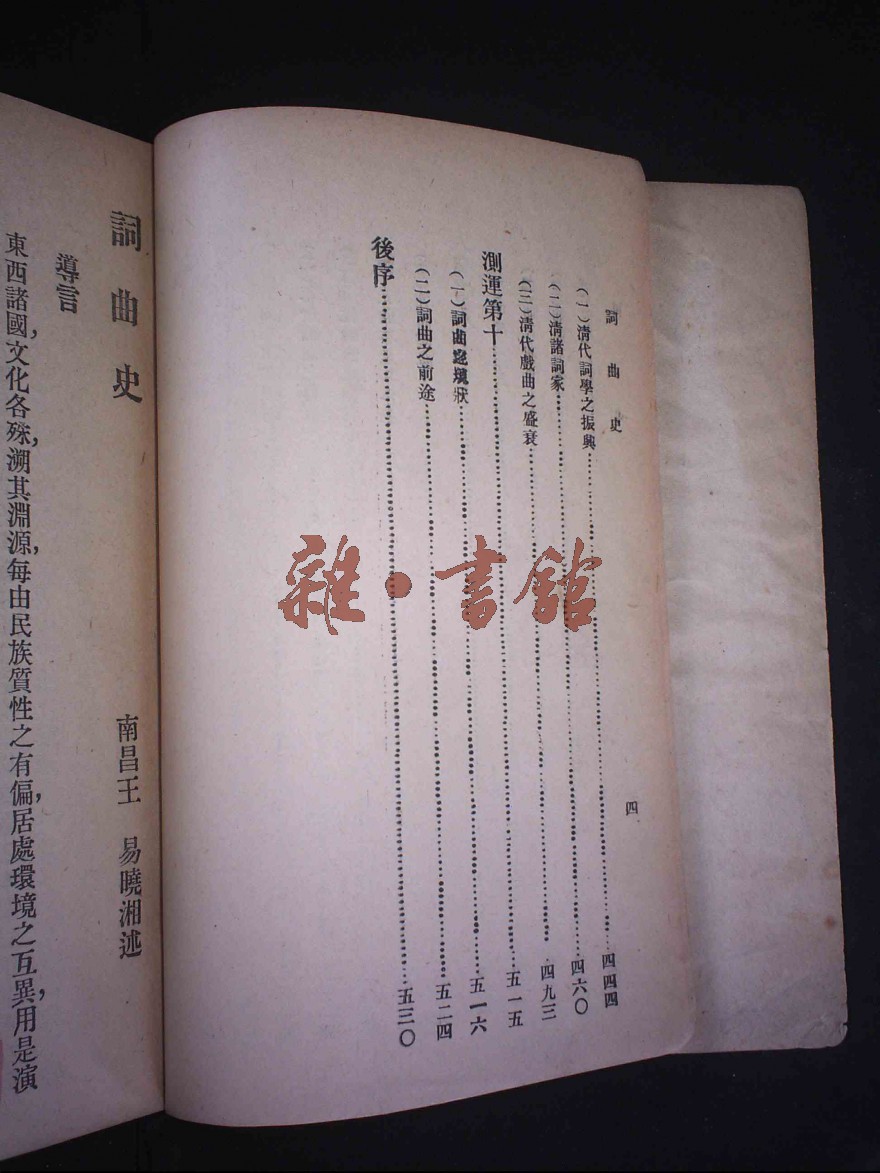 詞曲史
四
(一)清代詞學之振興……四四四
(二)清諸詞家……四六〇
(三)清代戲曲之盛衰……四九三
測運第十……五一五
(一)詞曲之現狀……五一六
(二)詞曲之前途……五二四
後序……五三〇
詞曲史
南昌王 易曉湘述
導言
東西諸國,文化各殊,溯其淵源,每由民族質性之有偏,居處環境之互異,用是演
雜·書館